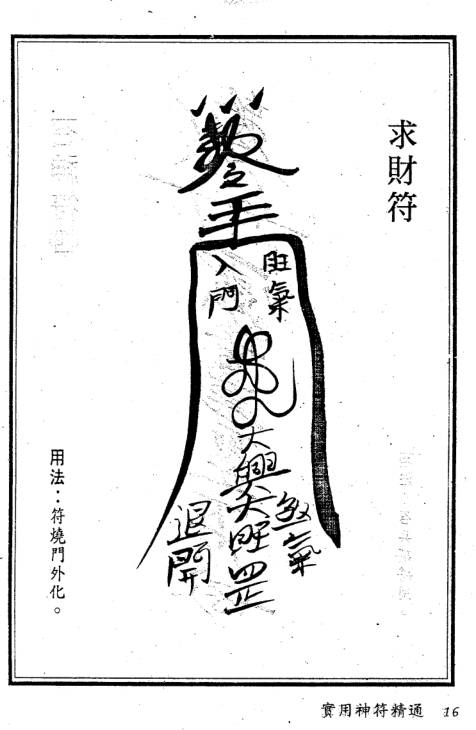 求財符
旺氣
入門
大興大旺罡
煞氣
退開
用法：符燒門外化。
實用神符精通 16